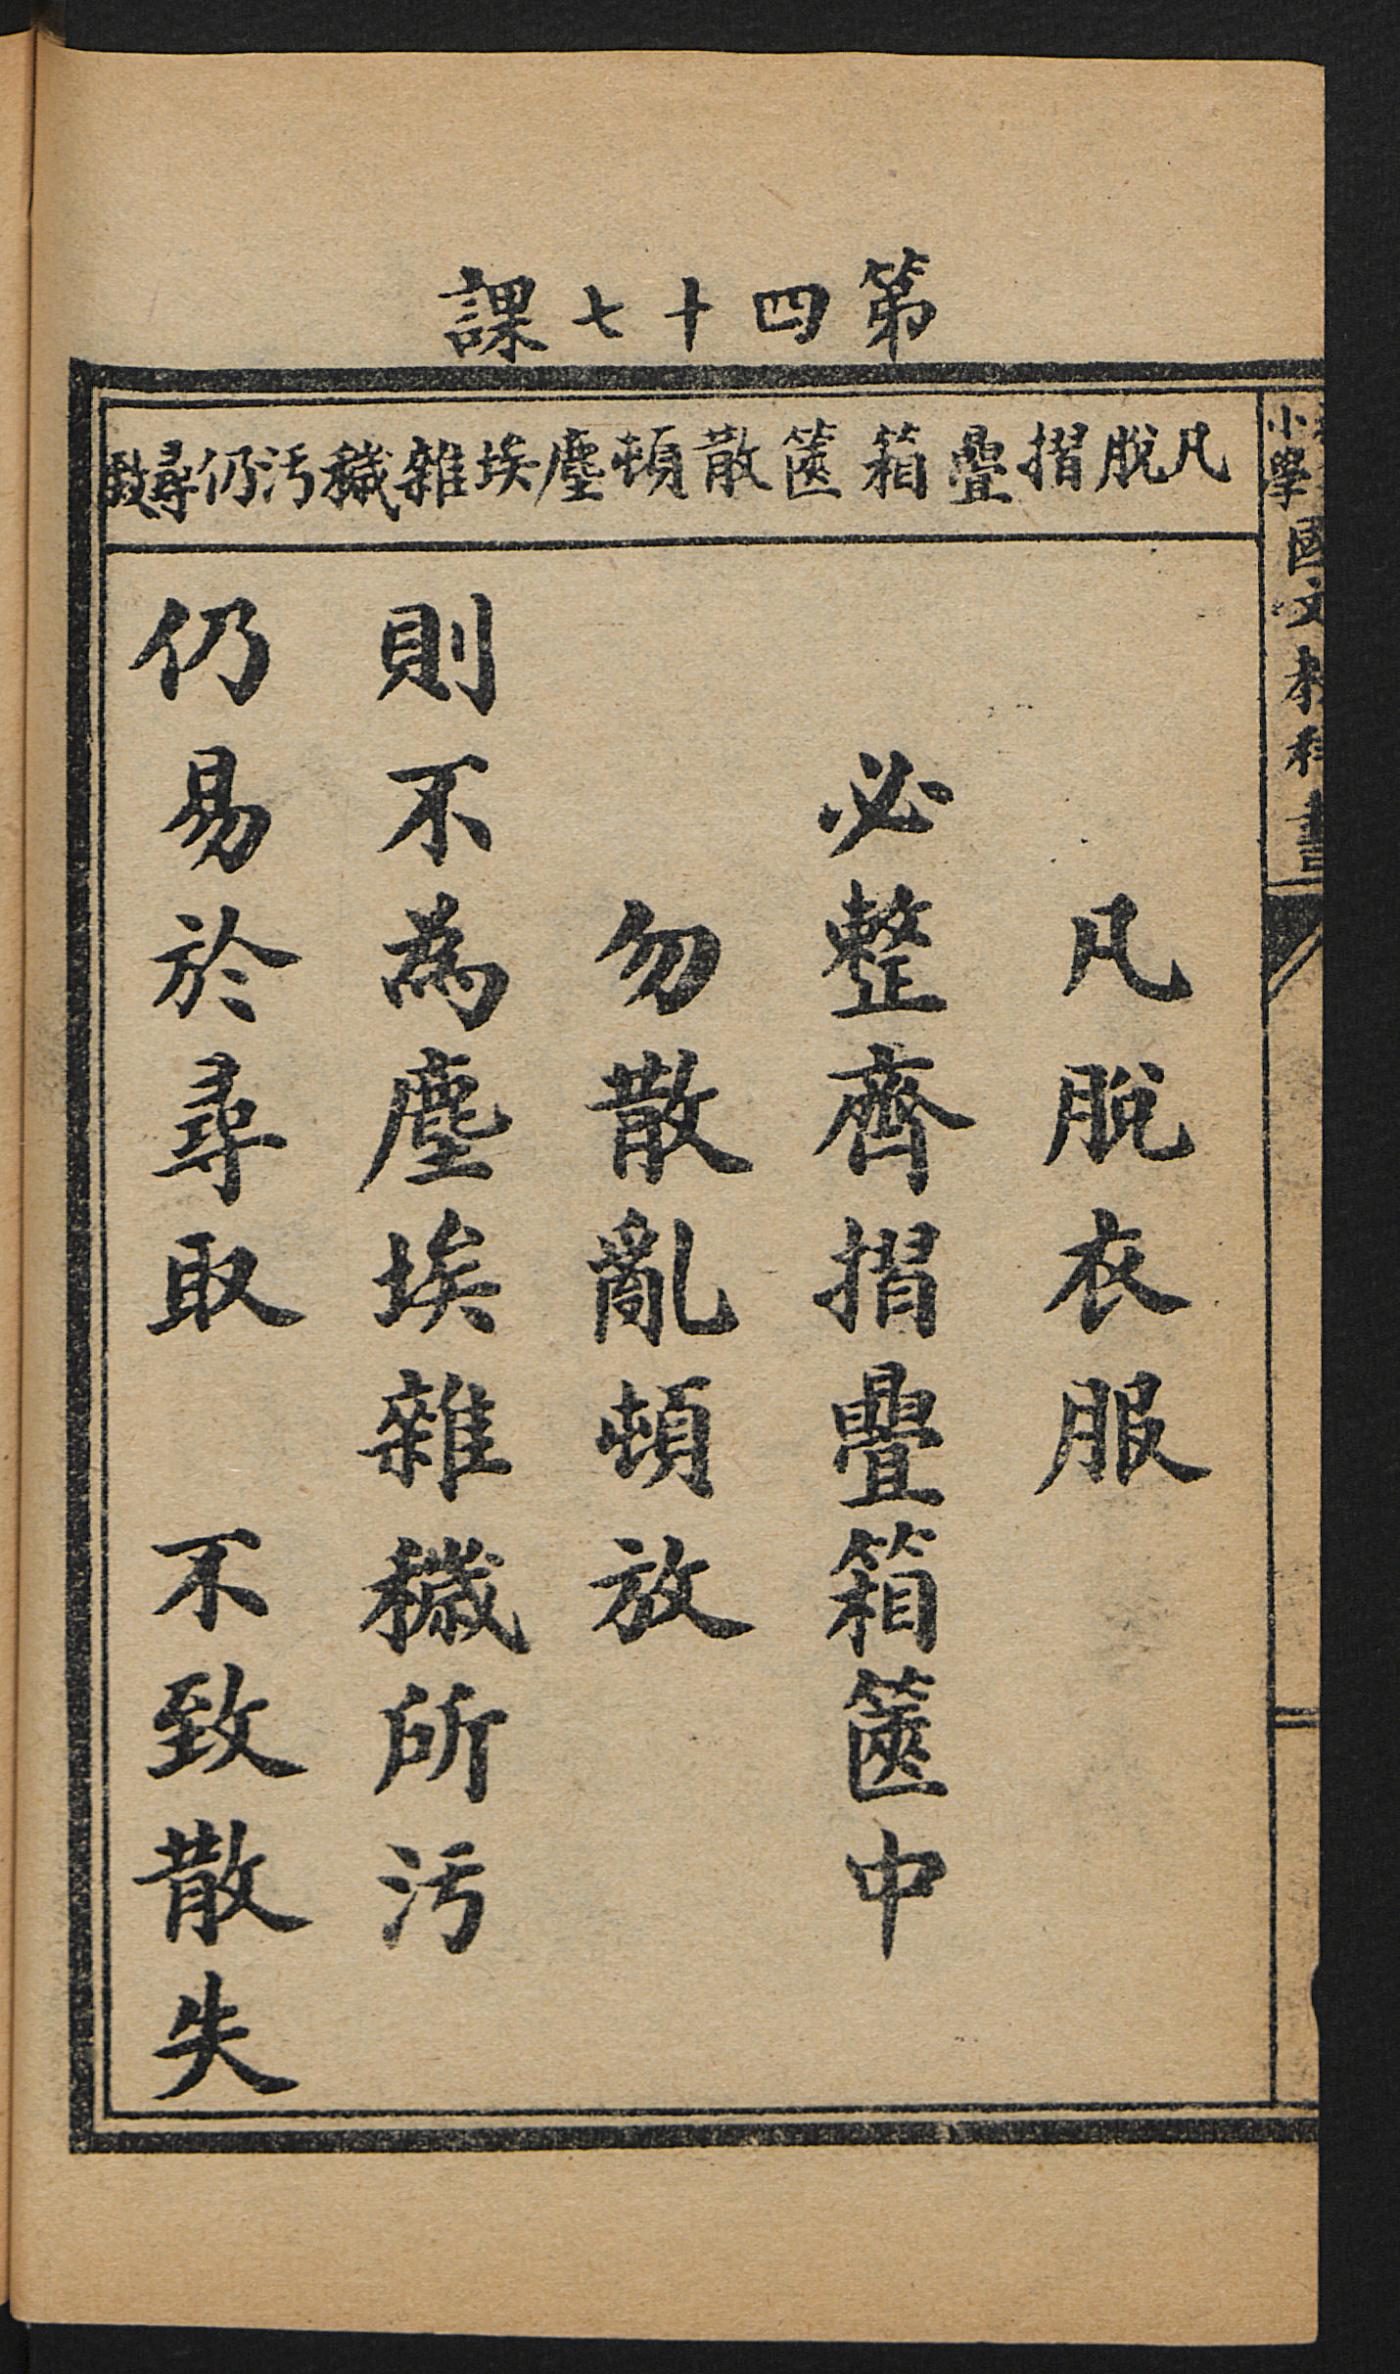 第四十七課
凡脫摺疊箱篋散頓塵埃雜穢污仍尋致
凡脫衣服
必整齊摺疊箱篋中
勿散亂頓放
則不為塵埃雜穢所污
仍易於尋取　不致散失
小學國文教科書